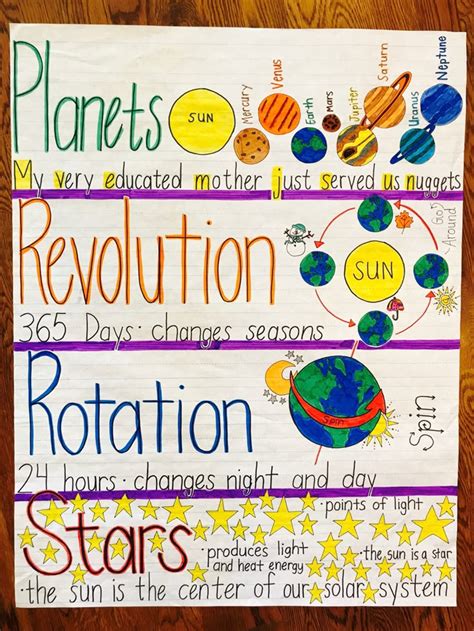 Planets
SUN
Mercury
Venus
Earth
Mars
Jupiter
Saturn
Uranus
Neptune
My very educated mother just served us nuggets
Revolution
SUN
Go Around
365 Days · changes seasons
Rotation
SPIN
Spin
24 hours · changes night and day
Stars
· points of light
· produces light and heat energy
· the sun is a star
· the sun is the center of our solar system